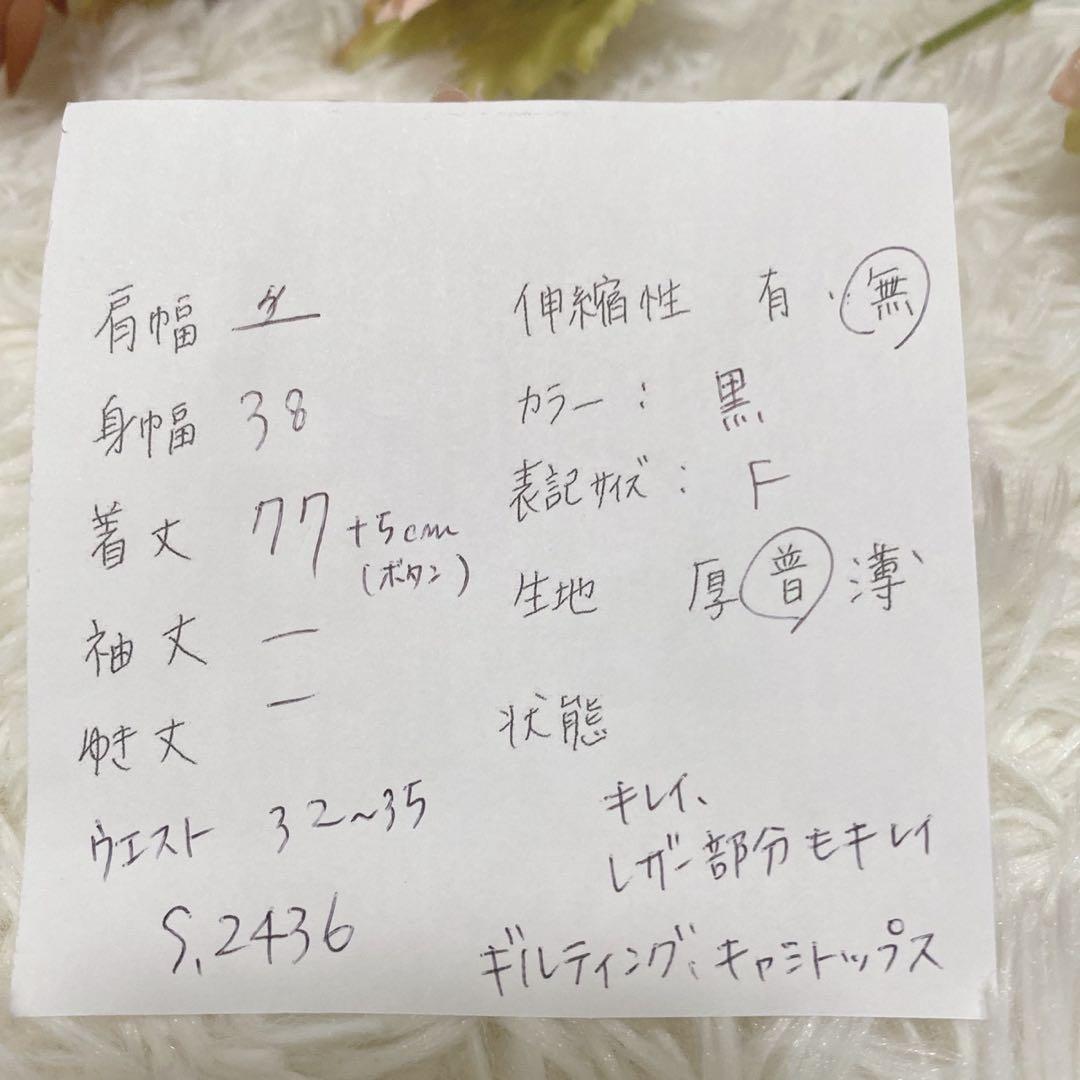 肩幅
身幅 38
着丈 77 +5cm
(ボタン)
袖丈 ー
ゆき丈 ー
ウエスト 32~35
S.2436
伸縮性 有・無
カラー: 黒
表記サイズ: F
生地 厚 普 薄
状態
キレイ、
レザー部分もキレイ
ギルティング、キャミトップス